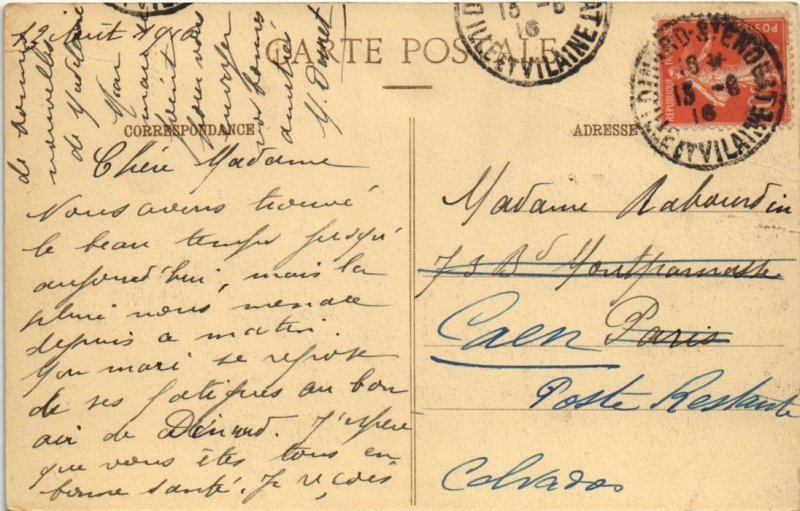 12 Août 1916
CARTE POSTALE
CORRESPONDANCE
ADRESSE
Chère Madame
Nous avons trouvé
le beau temps jusqu'
aujourd'hui, mais la
pluie nous menace
depuis ce matin.
Mon mari se repose
de ses fatigues au bon
air de Dinard. J'espère
que vous êtes tous en
bonne santé. Je
de
nouvelles
de Madeleine
Mon
mari
joint
pour vous
envoyer
vos bonnes
amitiés
Madame Rabourdin
73 Bd Montparnasse
Caen Paris
Poste Restante
Calvados
DINARD-ST ENOGAT
18 *
13 -8
16
ILLE ET VILAINE
13 -8
16
ILLE ET VILAINE